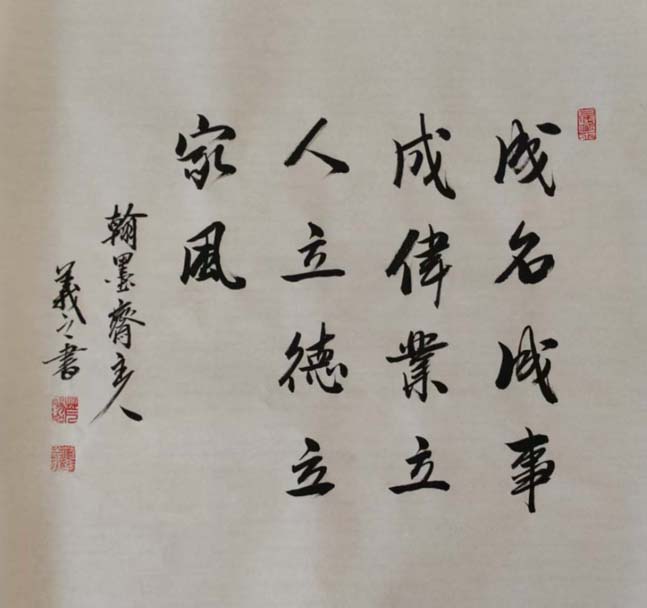 成名成事
成偉業立
人立德立
家風
翰墨齋主人
義之書